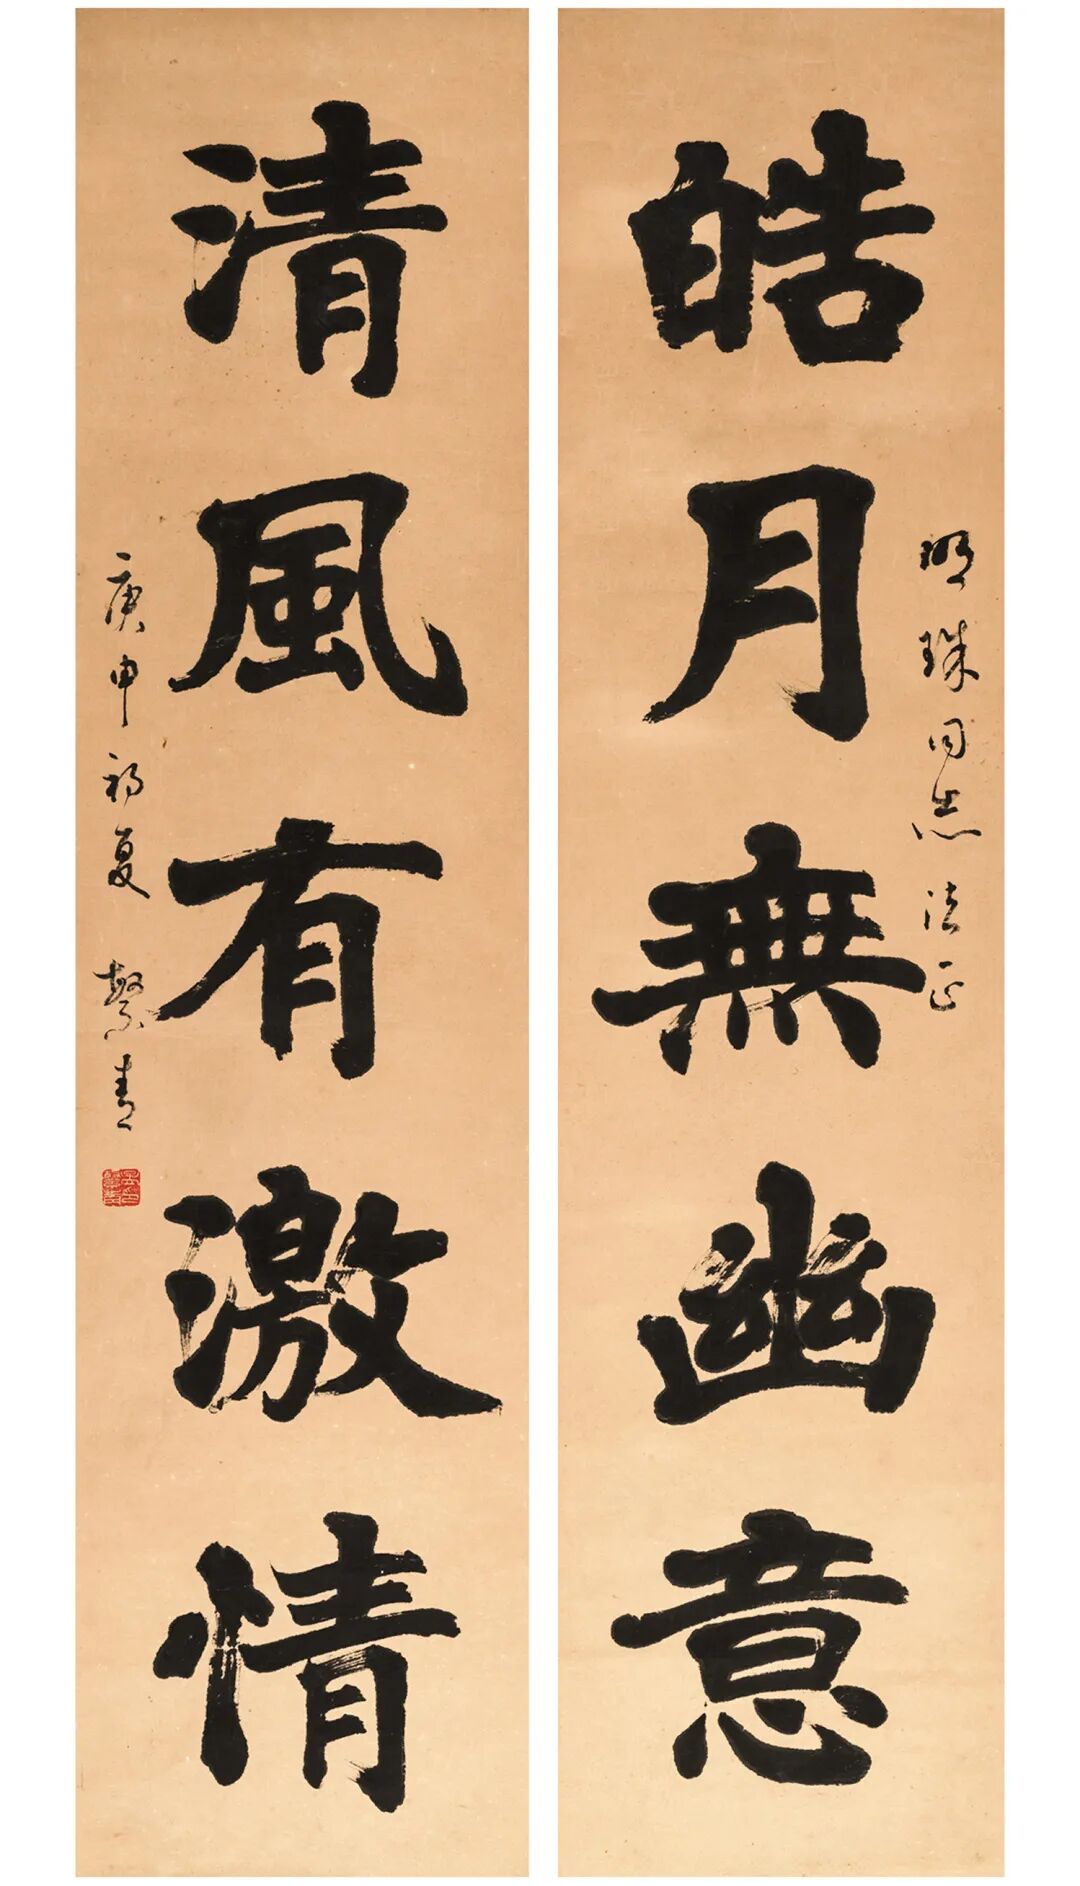 皓月無幽意
明珠同志法正
清風有激情
庚申初夏 繫青